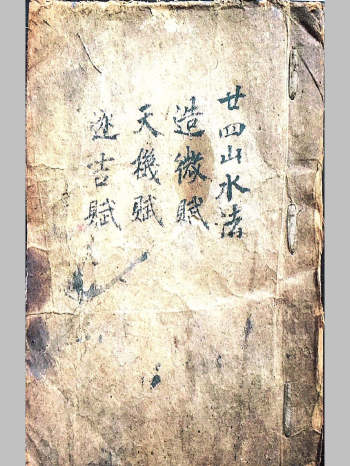 廿四山水
造微賦
天機賦
吉賦